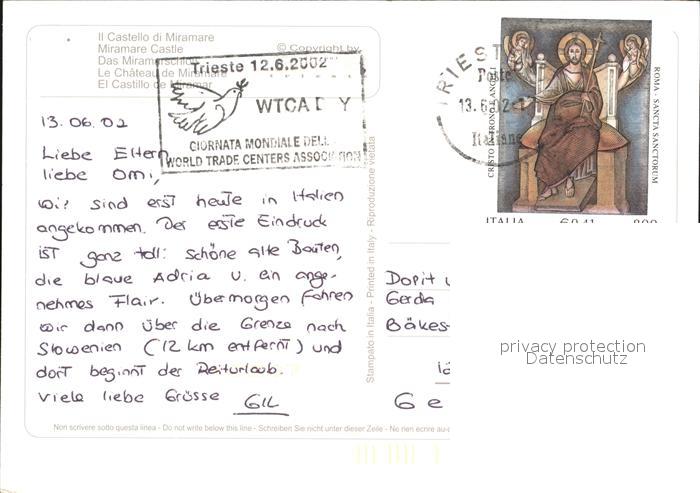 Il Castello di Miramare
Miramare Castle
Das Miramare Schloß
Le Château de Miramare
El Castillo de Miramar
© Copyright by
Trieste 12.6.2002
WTCA D Y
GIORNATA MONDIALE DELL
WORLD TRADE CENTERS ASSOCIATION
TRIESTE
Poste
13.6.02-1
Italiane
CRISTO IN TRONO E ANGELI
ROMA - SANCTA SANCTORUM
ITALIA € 0,41 800
13.06.02
Liebe Eltern,
liebe Omi,
wir sind erst heute in Italien
angekommen. Der erste Eindruck
ist ganz toll: schöne alte Bauten,
die blaue Adria u. ein ange-
nehmes Flair. Übermorgen fahren
wir dann über die Grenze nach
Slowenien (12 km entfernt) und
dort beginnt der Reiturlaub.
Viele liebe Grüsse GIL
Stampato in Italia - Printed in Italy - Riproduzione vietata
Gerda
Bäkes
G e
privacy protection
Datenschutz
Non scrivere sotto questa linea - Do not write below this line - Schreiben Sie nicht unter dieser Zeile - Ne rien ecrire au-